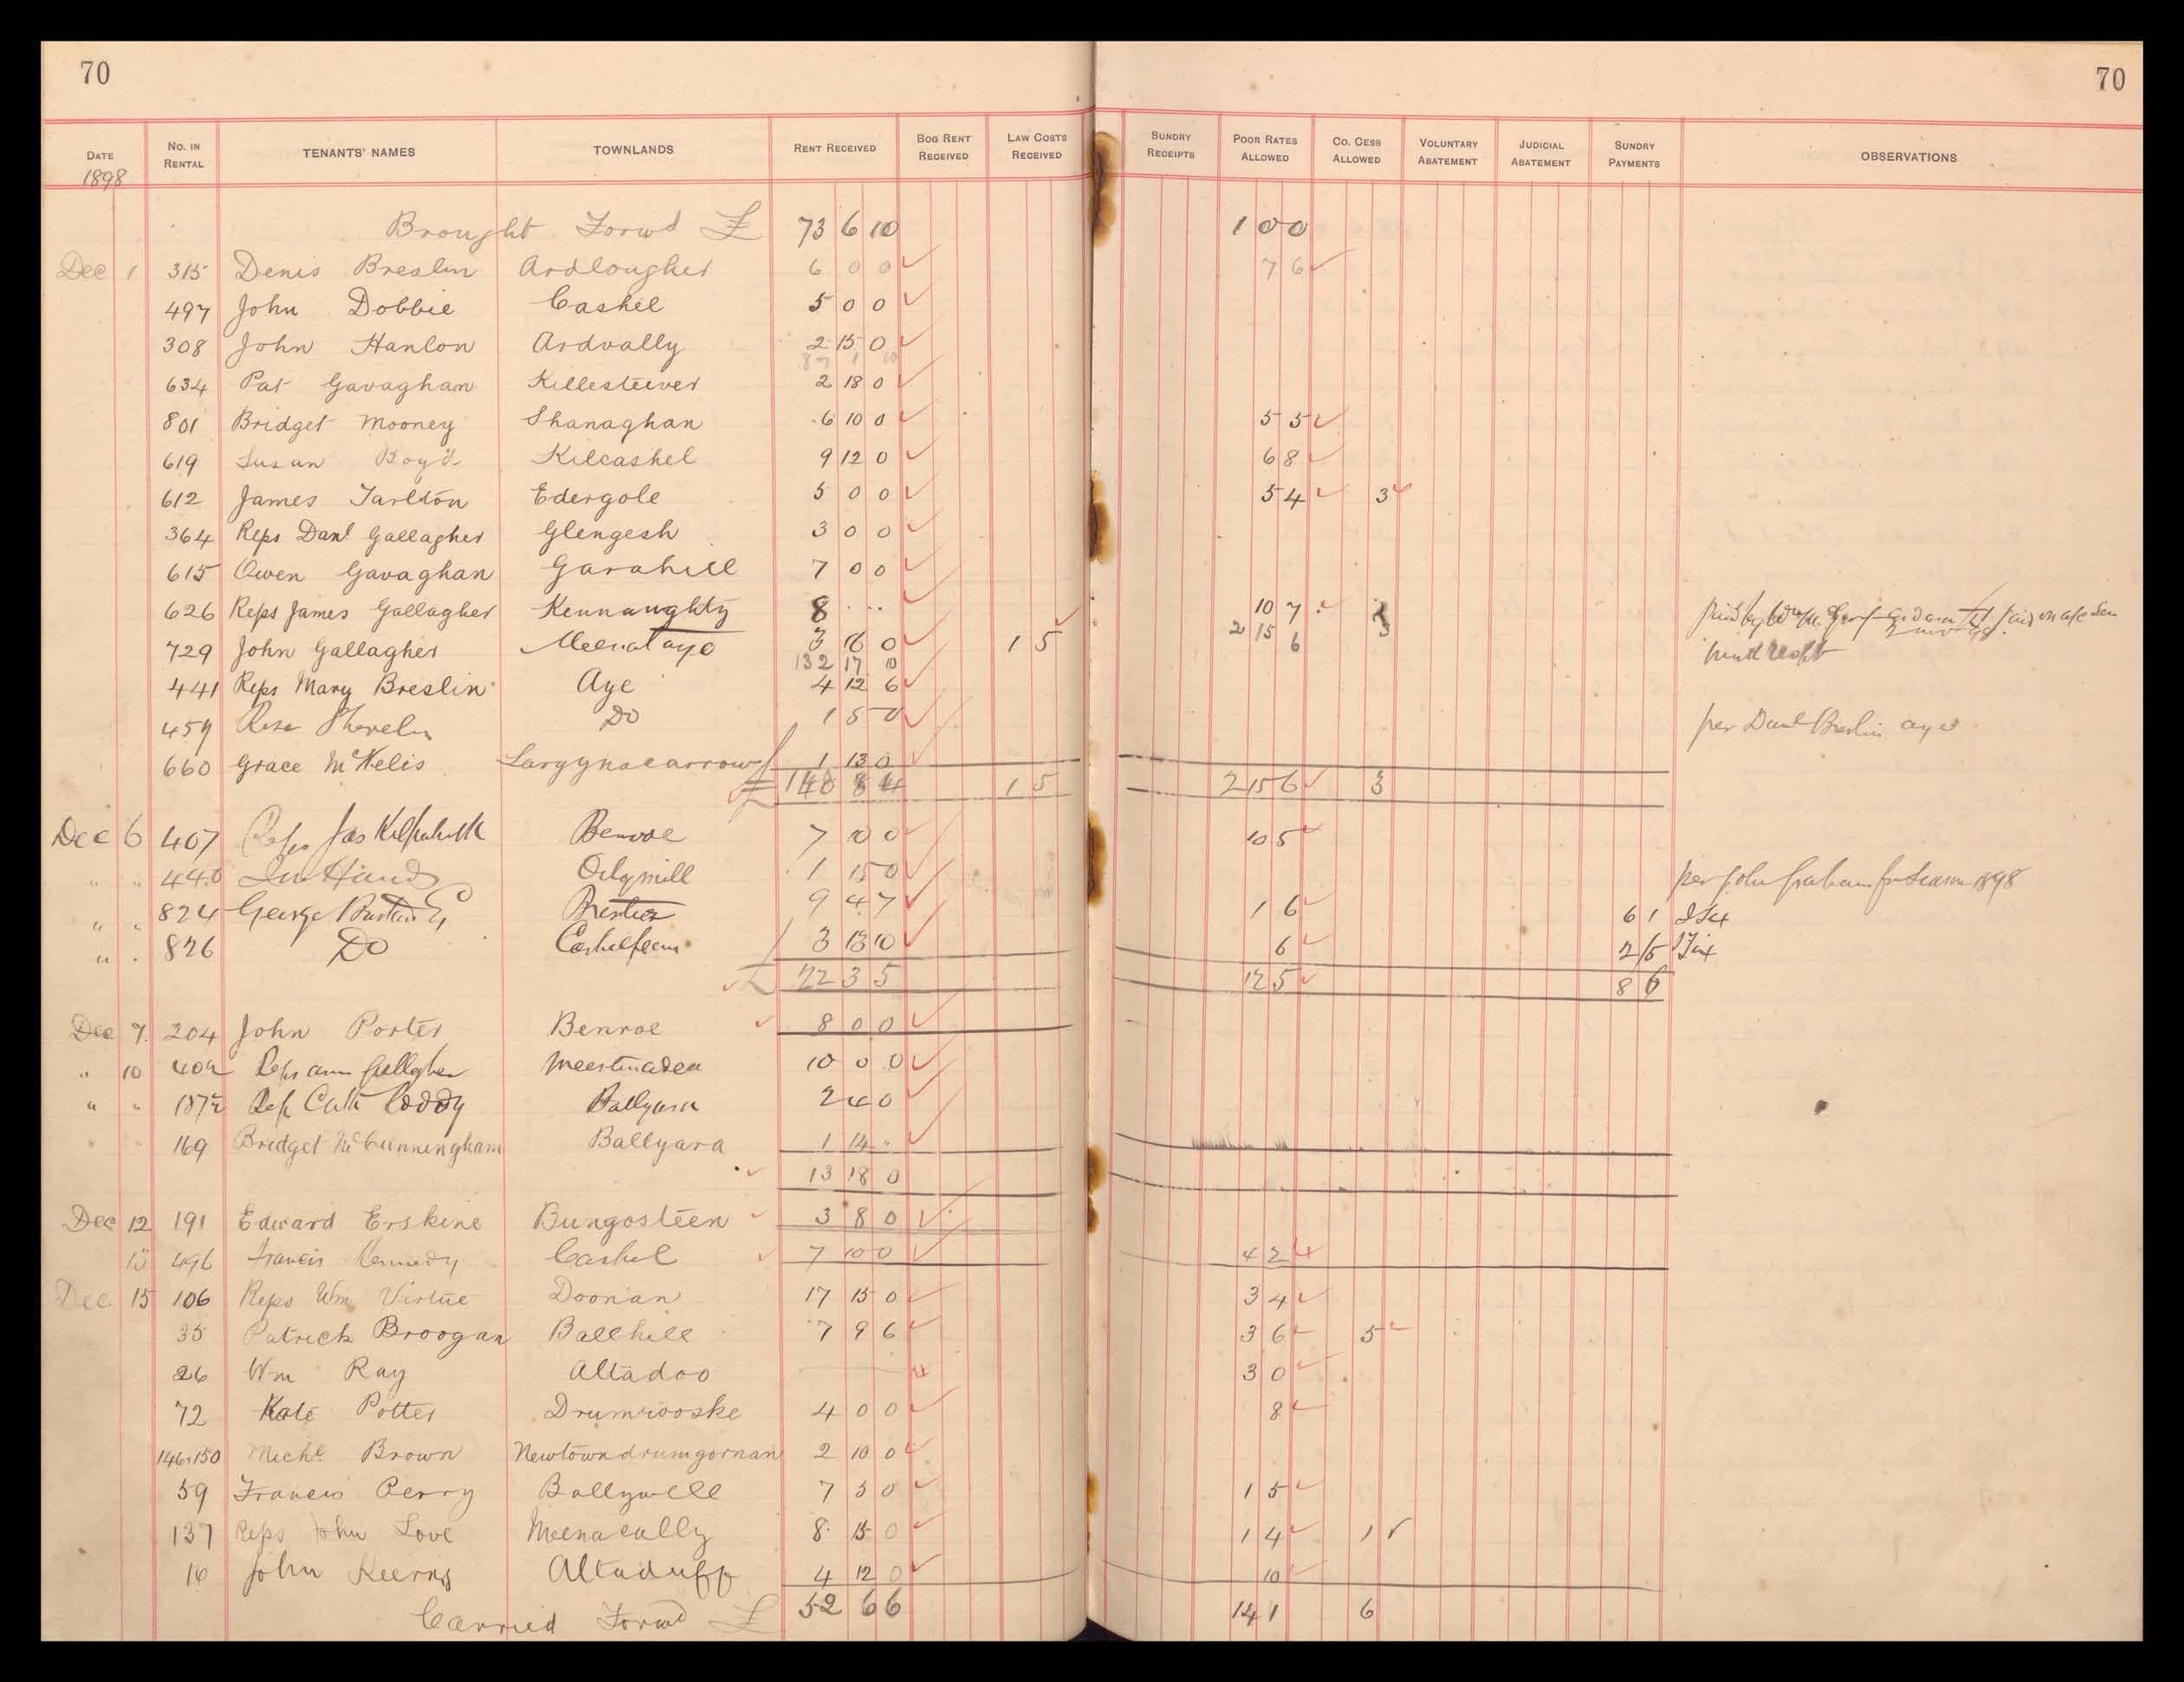 70 70
DATE 1898 No. IN RENTAL TENANTS' NAMES TOWNLANDS RENT RECEIVED BOG RENT RECEIVED LAW COSTS RECEIVED SUNDRY RECEIPTS POOR RATES ALLOWED CO. CESS ALLOWED VOLUNTARY ABATEMENT JUDICIAL ABATEMENT SUNDRY PAYMENTS OBSERVATIONS
Brought Forwd £ 73 6 10 1 0 0
Dec 1 315 Denis Breslin Ardlougher 6 0 0 7 6
497 John Dobbie Cashel 5 0 0
308 John Hanlon Ardvally 2 15 0
87 1 10
634 Pat Gavaghan Killesteever 2 18 0
801 Bridget Mooney Shanaghan 6 10 0 5 5
619 Susan Boyd Kilcashel 9 12 0 6 8
612 James Tarlton Edergole 5 0 0 5 4 3
364 Reps Danl Gallagher Glengesh 3 0 0
615 Owen Gavaghan Garahill 7 0 0
626 Reps James Gallagher Kennaughty 8 .. 10 7
2 15 6 3
729 John Gallagher Meenatayo 3 16 0 1 5
132 17 10
441 Reps Mary Breslin Aye 4 12 6
459 Rose Shovelin Do 1 5 0 per Danl Breslin aye
660 Grace McNelis Largynacarrow 1 13 0
£ 140 8 4 1 5 2 15 6 3
Dec 6 407 Reps Jas Kilpatrick Benroe 7 10 0 10 5
" " 440 Oilymill 1 15 0 per John Graham for Season 1898
" " 824 George 9 4 7 1 6 6 1 I Tax
" " 826 Do 3 13 10 6 2 5 I Tax
£ 22 3 5 12 5 8 6
Dec 7 204 John Porter Benroe 8 0 0
" 10 Reps Ann Gallagher 10 0 0
" " Rep Cath Coddy Ballyara 2 4 0
" " 169 Bridget McCunningham Ballyara 1 14 "
13 18 0
Dec 12 191 Edward Erskine Bungosteen 3 8 0
13 496 Francis Kennedy Cashel 7 10 0 4 2
Dec 15 106 Reps Wm Virtue Doonan 17 15 0 3 4
35 Patrick Broogan Ballhill 7 9 6 3 6 5
26 Wm Ray Altadoo 3 0
72 Kate Potter Drumrooske 4 0 0 8
146+150 Michl Brown Newtowndrumgornan 2 10 0
59 Francis Perry Ballywell 7 5 0 1 5
137 Reps John Love Meenacally 8 15 0 1 4 1
16 John Keerns Altaduff 4 12 0 10
Carried Forwd £ 52 6 6 14 1 6